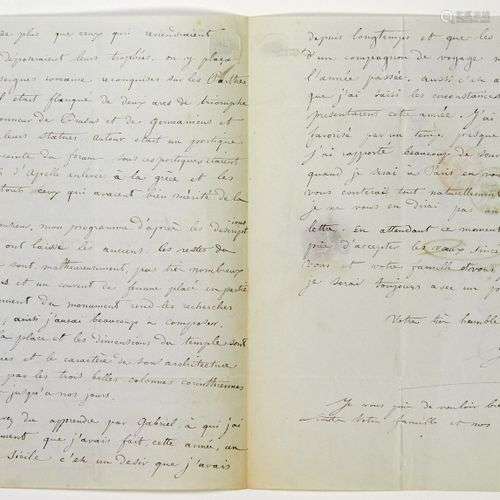 de plus que ceux qui revenaient
deposaient leurs trophées. on y plaça
enseignes romaine, reconquises sur les Parthes
il était flanqué de deux arcs de triomphe
honneur de Drusus et de Germanicus et
leurs statues. autour était un portique
du forum. sous ces portiques étaient
d'Apelle enlevée à la grèce et les
tous ceux qui avaient bien mérité de la
mon programme d'après les descript-ions
ont laissé les anciens. les restes du
sont malheureusement, pas bien nombreux
et un couvent de femme placé en partie
du monument rend les recherches
ainsi j'aurai beaucoup à composer.
la place et les dimensions du temple sont
et le caractère de son architecture
par les trois belles colonnes corinthiennes
jusqu'à nos jours.
du apprendre par Gabriel à qui j'ai
que j'avais fait cette année, un
Sicile c'est un desir que j'avais
depuis longtemps et que les
d'un compagnon de voyage
l'année passée. aussi c'est
que j'ai saisi les circonstances
presentaient cette année. J'ai
favorisé par un temps presque
j'ai rapporté beaucoup de
quand je serai à Paris en
vous conterai tout naturellement
je ne vous en dirai pas
lettre. En attendant ce moment
prie d'accepter les vœux
vous et votre famille et
je serai toujours avec un
Votre très humble
Je vous prie de vouloir
votre famille et nos